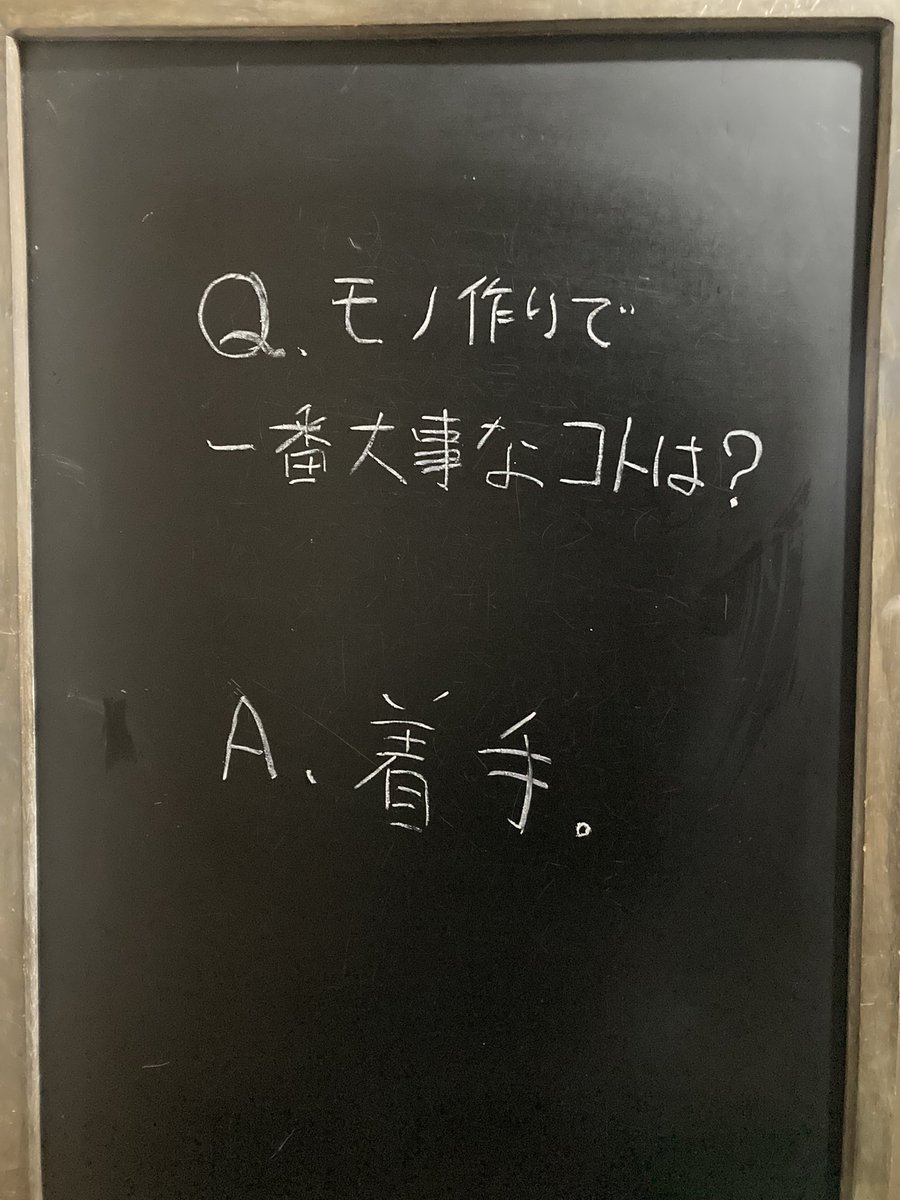 Q.モノ作りで
一番大事なコトは?
A、着手。